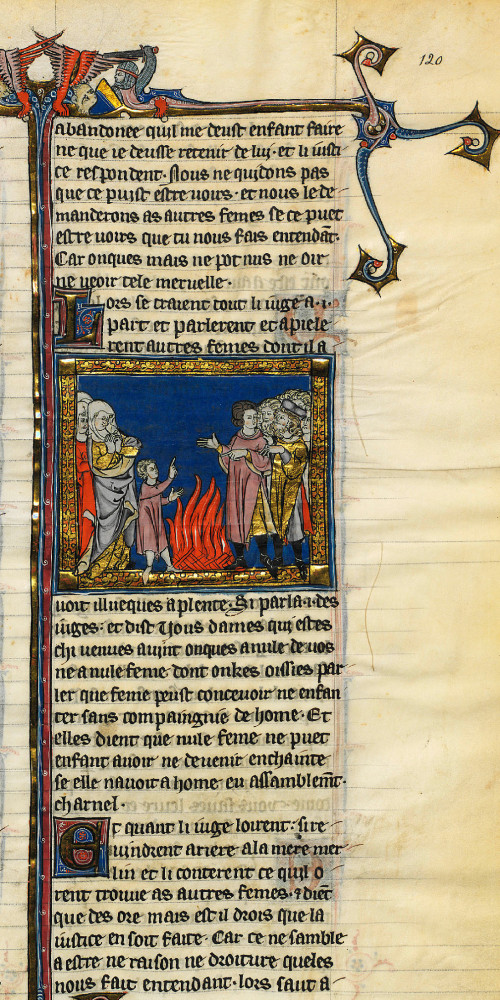 120
abandonee quil me deust enfant faire
ne que ie deusse retenir de luj · et li iusti
ce respondent · Nous ne quidons pas
que ce puist estre uoirs · et nous le de
manderons as autres femes se ce puet
estre uoirs que tu nous fais entendāt ·
Car onques mais ne pot nus ne oir
ne ueoir tele merueille ·
Lors se traient tout li iuge a · i ·
part et parlerent et apiele
rent autres femes dont il a
uoit illueques a plente · Si parla · i · des
iuges · et dist Uous dames qui estes
chi uenues auint onques a nule de uos
ne a nule feme dont onkes oissies par
ler que feme peust conceuoir ne enfan
ter sans compaingnie de home · Et
elles dient que nule feme ne puet
enfant auoir ne deuenir enchainte
se elle nauoit a home eu assamblemt ·
charnel ·
Et quant li iuge loirent · si re
uindrent ariere a la mere mer
lin et li conterent ce quil o
rent trouue as autres femes · ⁊ diēt
que des ore mais est il drois que la
iustice en soit faite · Car ce ne samble
a estre ne raison ne droiture queles
nous fait entendant · lors saut a